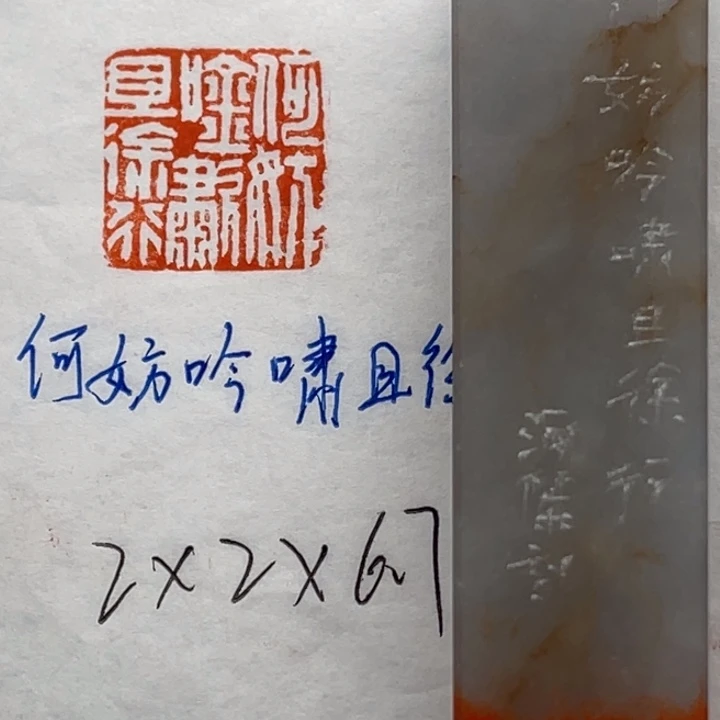 何妨
吟啸
且徐行
何妨吟啸且徐
2×2×6.7
妨吟啸且徐行